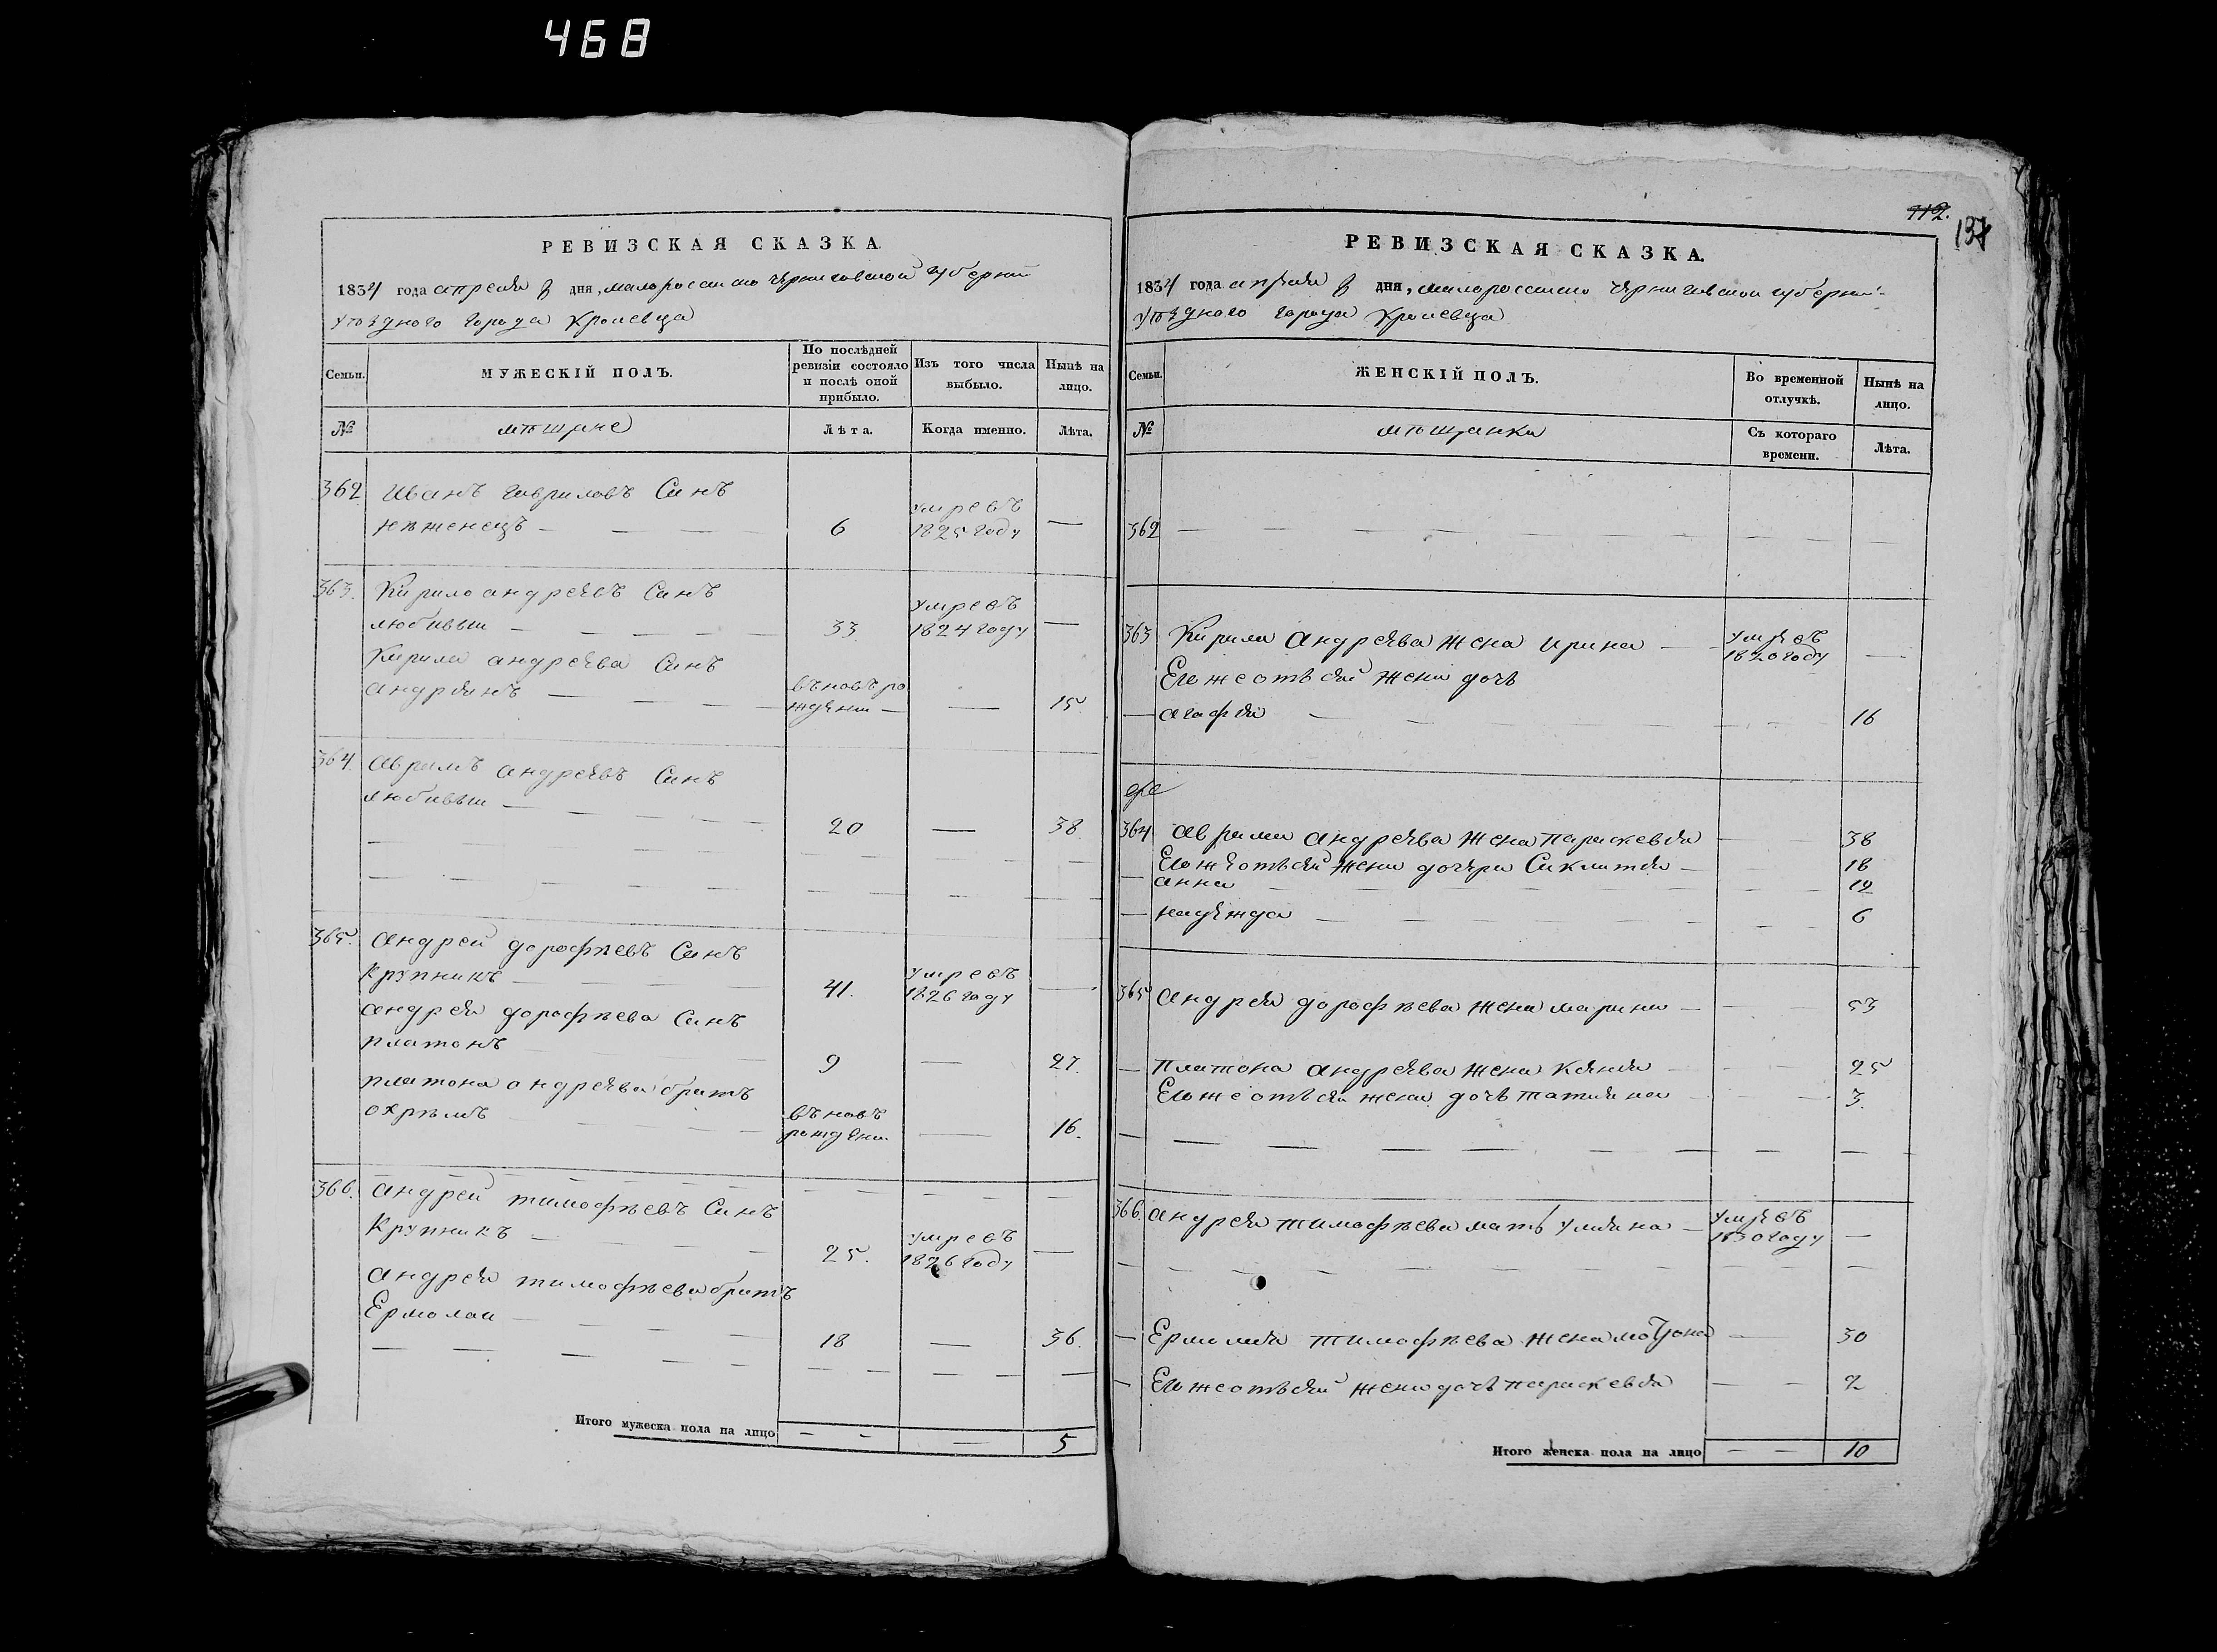 468
РЕВИЗСКАЯ СКАЗКА.
1834 года апреля дня, малороссиско Черниговской губернии
уѣздного города Кролевца
Семьи.
МУЖЕСКІЙ ПОЛЪ.
По послѣдней
ревизіи состояло
и послѣ оной
прибыло.
Изъ того числа
выбыло.
Нынѣ на
лицо.
№
мѣщане
Лѣта.
Когда именно.
Лѣта.
362 Иванъ Гавриловъ Синъ
нѣженецъ — — — 6 умревъ
1825 году —
363. Кирило андреевъ Синъ
33 умревъ
1824 году —
Кирила андреева Синъ
андріянъ — — — вѣновъ ро
ждени — — 15
364. Аврамъ андреевъ Синъ
20 — 38
365. Андрей дорофѣевъ Синъ
Крупникъ — — — 41. умревъ
1826 году —
андрея дорофѣева Синъ
платонъ 9 — 27.
платона андреева братъ
охрѣмъ вѣновъ
рождени — 16.
366. Андрей тимофѣевъ Синъ
Крупникъ — — — 25. умревъ
1826 году —
Андрея тимофѣева братъ
Ермолаи — — — 18 — 36.
Итого мужеска пола на лицо — — — 5
112.
137
РЕВИЗСКАЯ СКАЗКА.
1834 года апреля дня, малороссиско Черниговской губернии
уѣздного города Кролевца
Семьи.
ЖЕНСКІЙ ПОЛЪ.
Во временной
отлучкѣ.
Нынѣ на
лицо.
№
мѣщанки
Съ котораго
времени.
Лѣта.
362 — — — — — —
363 Кирила Андреева жена Ирина — умревъ
1820 году —
Егожеотъ жени дочъ
— агафія — — — 16
364 Аврама андреева жена параскевія — 38
Егожеотъ жени дочери Сиклитія — 18
анна — — — 12
— надежда — — — 6
365 Андрея дорофѣева жена марина — — 53
— Платона андреева жена Ксенія — — 25
Егожеотъ жени дочъ татияна — 3.
366. Андрея тимофѣева мать уляна — умревъ
1830 году —
— Ермолая тимофѣева жена мотрона — 30
— Егожеотъ жени дочъ параскевія — — 2
Итого женска пола на лицо — — 10